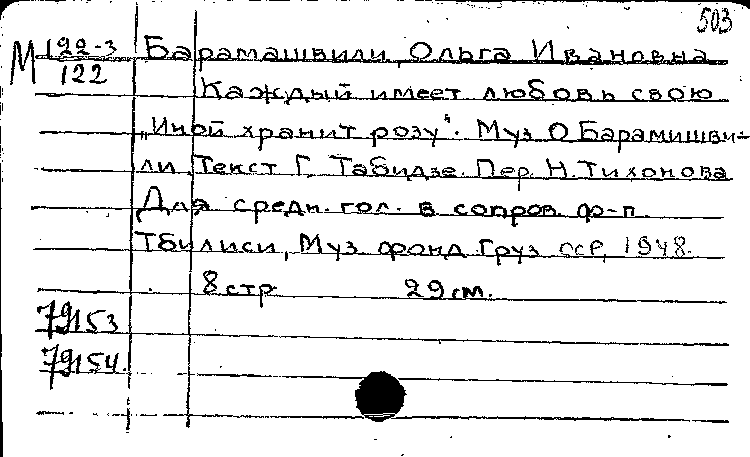 503
М 122-3/122 Барамашвили, Ольга Ивановна
Каждый имеет любовь свою
„Иной хранит розу“. Муз О Барамишви-
ли, Текст Г. Табидзе. Пер. Н. Тихонова
Для средн. гол. в сопров. ф-п.
Тбилиси, Муз. фонд Груз ССР, 1948.
8 стр 29 см.
79153
79154.